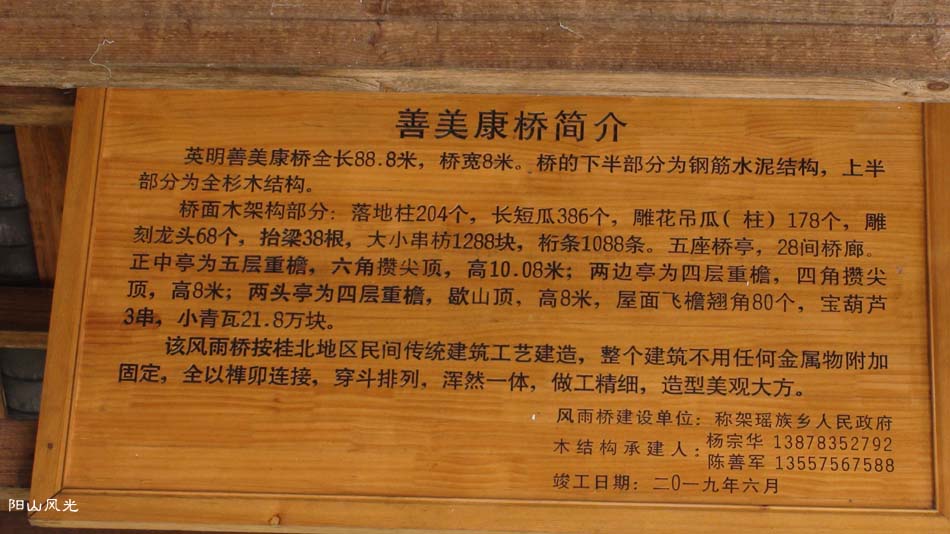 善美康桥简介
英明善美康桥全长88.8米，桥宽8米。桥的下半部分为钢筋水泥结构，上半
部分为全杉木结构。
桥面木架构部分：落地柱204个，长短瓜386个，雕花吊瓜（柱）178个，雕
刻龙头68个，抬梁38根，大小串枋1288块，桁条1088条。五座桥亭，28间桥廊。
正中亭为五层重檐，六角攒尖顶，高10.08米；两边亭为四层重檐，四角攒尖
顶，高8米；两头亭为四层重檐，歇山顶，高8米，屋面飞檐翘角80个，宝葫芦
3串，小青瓦21.8万块。
该风雨桥按桂北地区民间传统建筑工艺建造，整个建筑不用任何金属物附加
固定，全以榫卯连接，穿斗排列，浑然一体，做工精细，造型美观大方。
风雨桥建设单位：称架瑶族乡人民政府
木结构承建人：杨宗华 13878352792
陈善军 13557567588
竣工日期：二0一九年六月
阳山风光